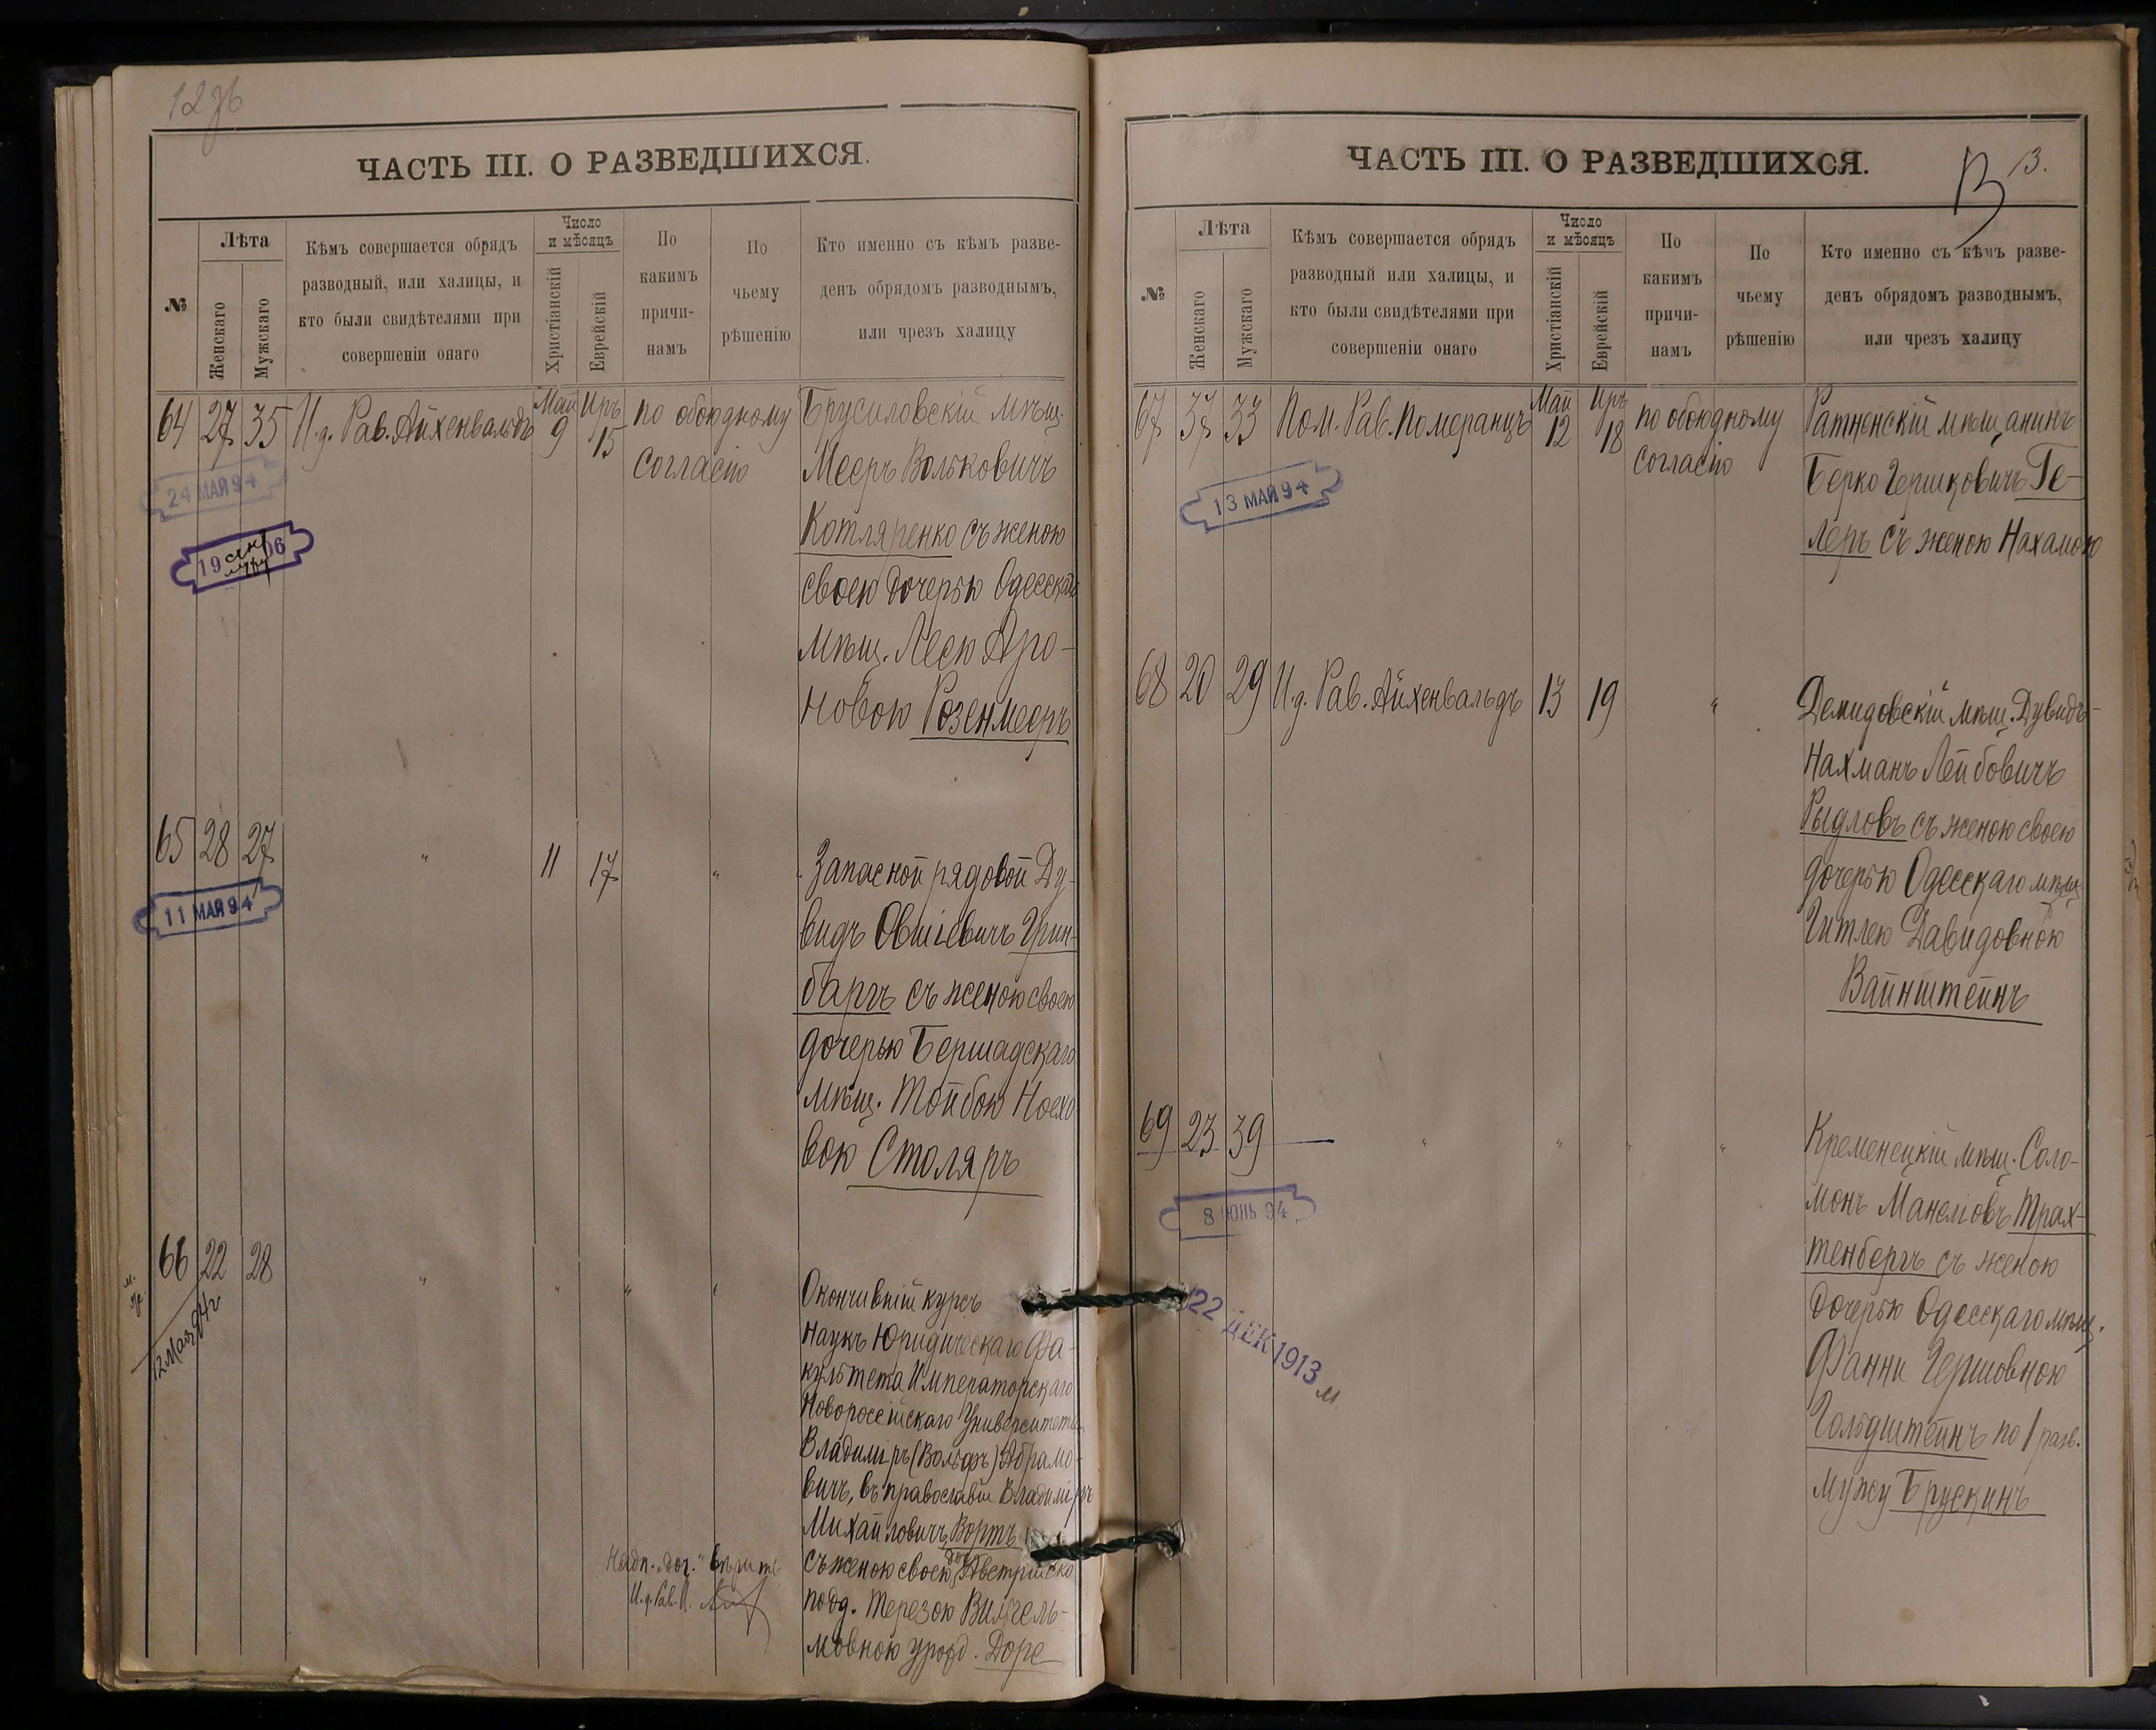 ЧАСТЬ III. О РАЗВЕДШИХСЯ.
№
Лѣта
Женскаго
Мужскаго
Кѣмъ совершается обрядъ
разводный, или халицы, и
кто были свидѣтелями при
совершеніи онаго
Число
и мѣсяцъ
Христіанскій
Еврейскій
По
какимъ
причи-
намъ
По
чьему
рѣшенію
Кто именно съ кѣмъ разве-
денъ обрядомъ разводнымъ,
или чрезъ халицу
64 27 35 И.д. Рав. Айхенвальдъ Май 9 Иръ 15 по обоюдному
согласію
Брусиловскій мѣщ.
Мееръ Вольковичъ
Котляренко съ женою
своею дочерью Одесскаго
мѣщ. Леею Аро-
новою Розенмееръ
24 МАЙ 94
19 06
65 28 27 " 11 17 "
Запасной рядовой Ду-
видъ Овшіевичъ Грин-
баргъ съ женою своею
дочерью Бершадскаго
мѣщ. Тойбою Ноехо
вою Столяръ
11 МАЯ 94
66 22 28 " " " "
12 Мая 94 г
Окончившій курсъ
наукъ Юридическаго Фа-
культета Императорскаго
Новороссійскаго Университета
Владиміръ (Вольфъ) Абрамо-
вичъ, въ православіи Владиміръ
Михайловичъ Вортъ
съ женою своею доч. Австрійско
подд. Терезою Вильгель-
мовною урожд. Доре
Надп. "доч." вѣрить
И.д. Рав.
ЧАСТЬ III. О РАЗВЕДШИХСЯ.
13.
№
Лѣта
Женскаго
Мужскаго
Кѣмъ совершается обрядъ
разводный или халицы, и
кто были свидѣтелями при
совершеніи онаго
Число
и мѣсяцъ
Христіанскій
Еврейскій
По
какимъ
причи-
намъ
По
чьему
рѣшенію
Кто именно съ кѣмъ разве-
денъ обрядомъ разводнымъ,
или чрезъ халицу
67 37 33 Пом. Рав. Померанцъ Май 12 Иръ 18 по обоюдному
согласію
Ратненскій мѣщанинъ
Берко Гершковичъ Ге-
леръ съ женою Нахамою
13 МАЯ 94
68 20 29 И.д. Рав. Айхенвальдъ 13 19 "
Демидовскій мѣщ. Дувидъ-
Нахманъ Лейбовичъ
Рыдловъ съ женою своею
дочерью Одесскаго мѣщ.
Гитлею Давидовною
Вайнштейнъ
69 23 39 — " " " "
Кременецкій мѣщ. Соло-
монъ Манеловъ Трах-
тенбергъ съ женою
дочерью Одесскаго мѣщ.
Фанни Гершовною
Гольдштейнъ по 1 разв.
мужу Брускинъ
8 ІЮНЬ 94
22 ДЕК 1913